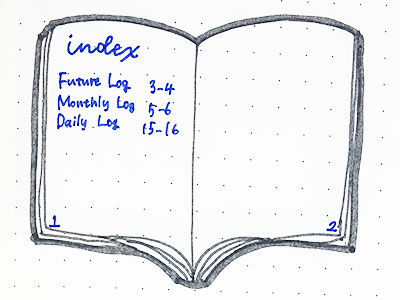 index
Future Log 3-4
Monthly Log 5-6
Daily Log 15-16
1
2